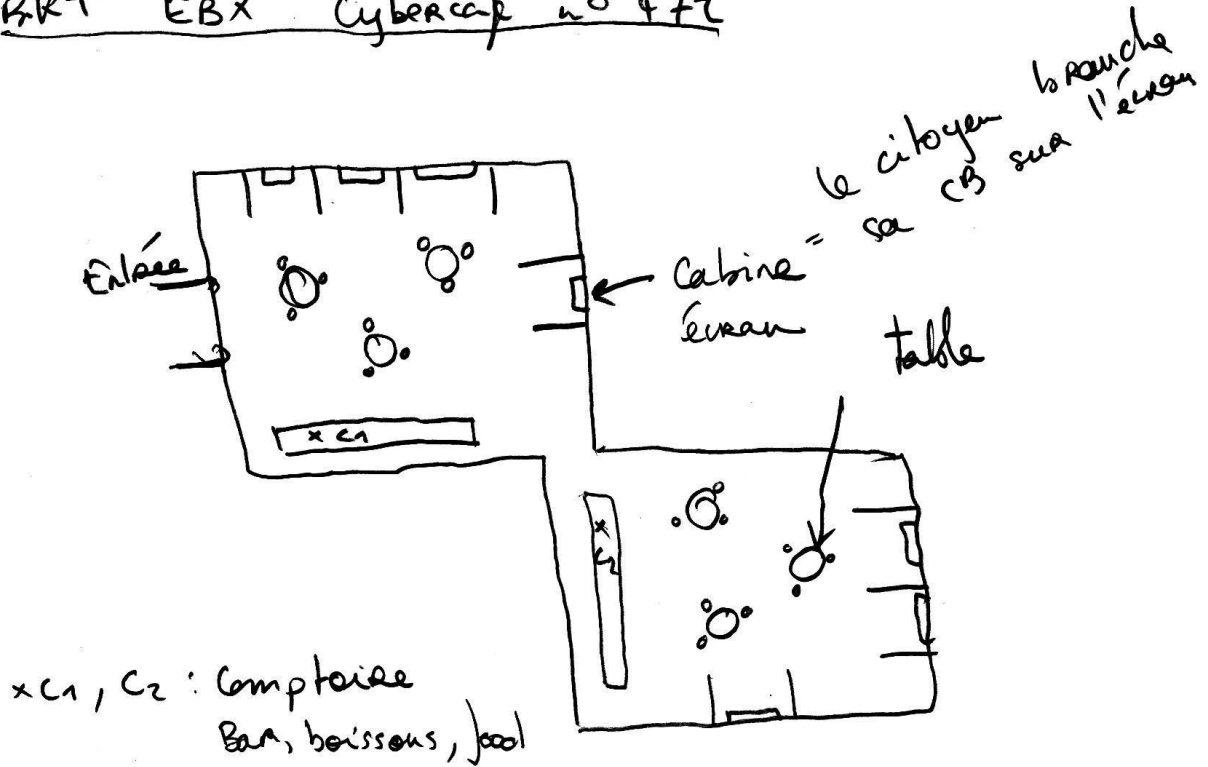 EBX Cybercafé n°
le citoyen branche
sa CB sur l'écran
Entrée
Cabine =
écran
table
x C1
x C2
x C1, C2 : Comptoire
Bar, boissons, food